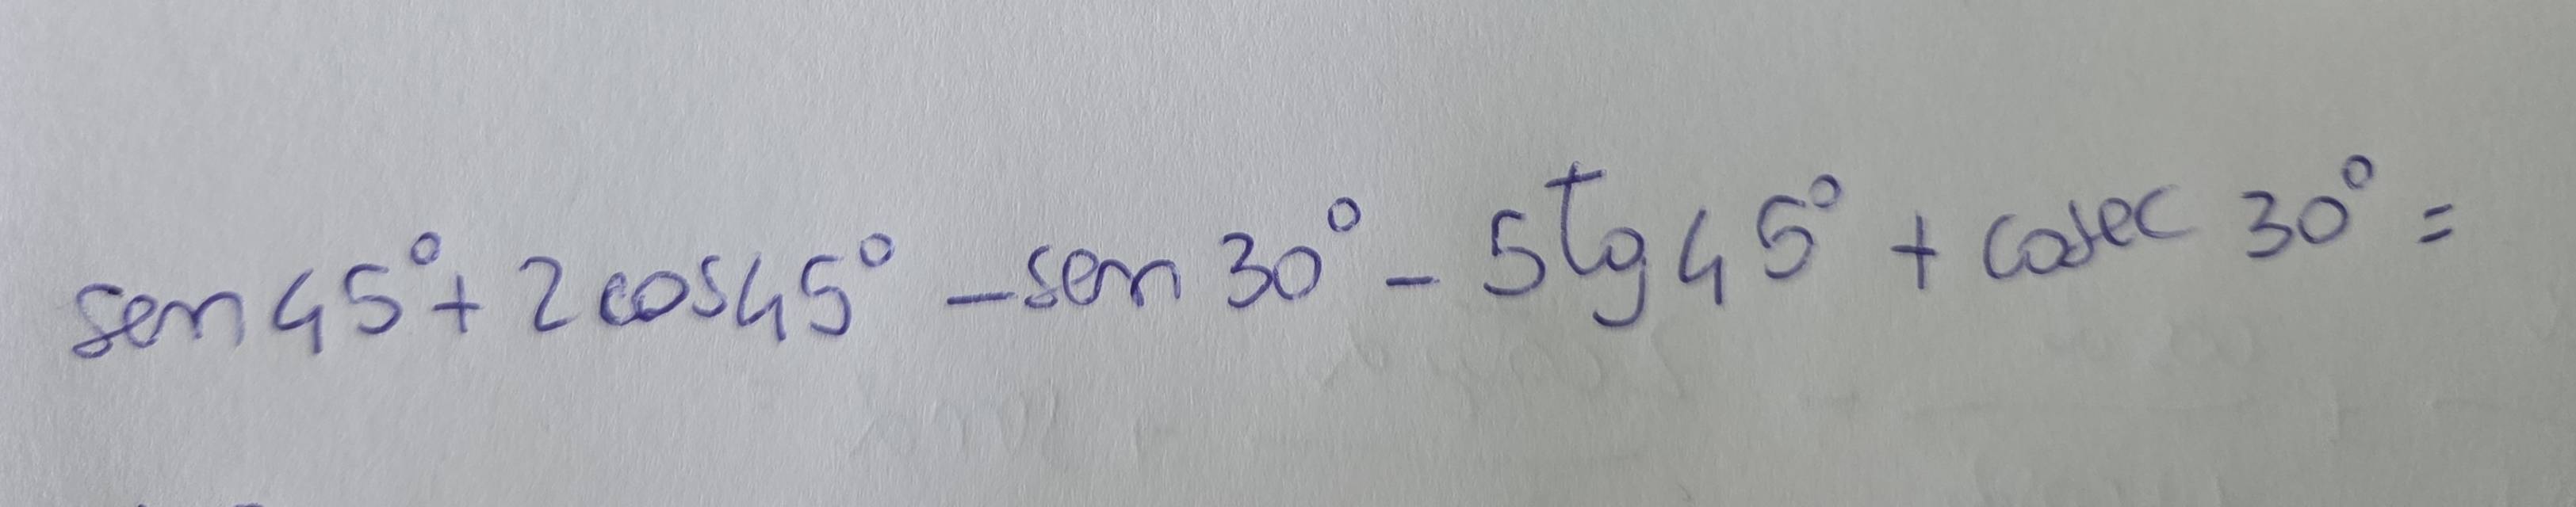 sen 45° + 2 cos 45° - sen 30° - 5 tg 45° + cosec 30° =